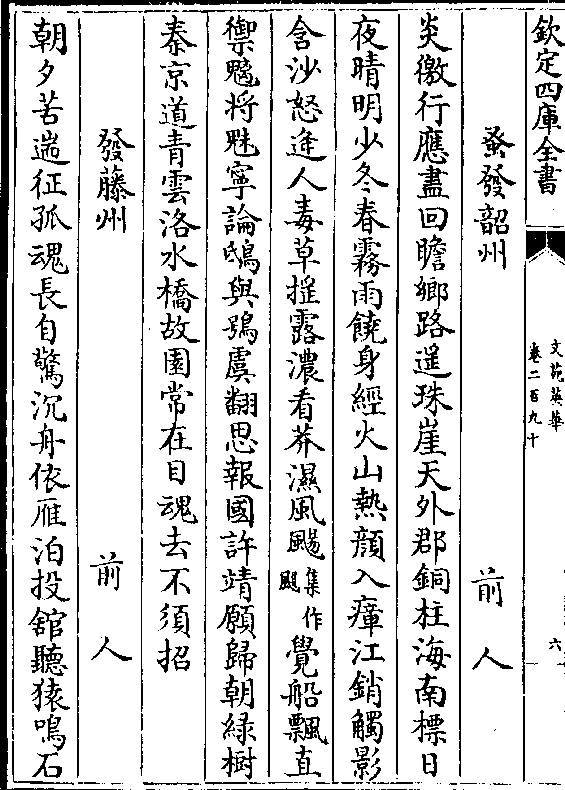 欽定四庫全書
文苑英華
卷二百九十
六
蚤發韶州
前人
炎徼行應盡回瞻鄉路遥珠崖天外郡銅柱海南標日
夜晴明少冬春霧雨饒身經火山熱顔入瘴江銷觸影
含沙怒逢人毒草揺露濃看莽濕風颺集作颸覺船飄直
禦魑將魅寧論鴟與鴞虞翻思報國許靖願歸朝緑樹
秦京道青雲洛水橋故園常在目魂去不須招
發藤州
前人
朝夕苦遄征孤魂長自驚沉舟依雁泊投舘聽猿鳴石